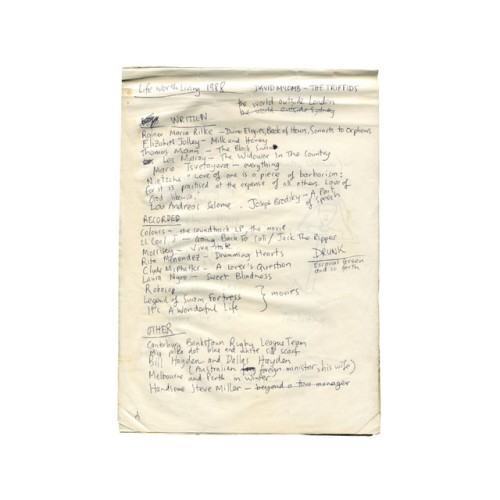 Life Worth Living 1988 DAVID McCOMB - THE TRIFFIDS
the world outside London
be world outside Sydney
WRITTEN
Rainer Maria Rilke - Duino Elegies, Book of Hours, Sonnets to Orpheus
Elizabeth Jolley - Milk and Honey
Thomas Mann - The Black Swan
Les Murray - The Widower In The Country
Maria Tsvetayeva - everything
Nietzsche "Love of one is a piece of barbarism:
for it is practised at the expense of all others. Love of
God likewise."
Lou Andreas Salome. - Joseph Brodsky - A Part
of Speech
RECORDED
Colours - the soundtrack LP, the movie
LL Cool J - Going Back To Cali / Jack The Ripper
Morrissey - Viva Hate
Rita Menendez - Drumming Hearts
Clyde McPhatter - A Lover's Question
Laura Nyro - Sweet Blindness
DRUNK
green
and so forth
Robocop
Legend of Suram Fortress } movies
It's A Wonderful Life
OTHER
Canterbury Bankstown Rugby League Team
My polka dot blue and white silk scarf
Bill Hayden and Dallas Hayden
(Australian foreign minister, his wife)
Melbourne and Perth in Winter
Handsome Steve Miller - beyond a tour manager